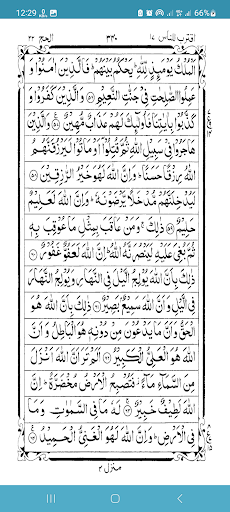 12:29
66%
اقترب للناس ١٧
٣٢٠
الحج ٢٢
اَلْمُلْكُ يَوْمَئِذٍ لِّلّٰهِ ؕ يَحْكُمُ بَيْنَهُمْ ؕ فَالَّذِيْنَ اٰمَنُوْا وَ
عَمِلُوا الصّٰلِحٰتِ فِيْ جَنّٰتِ النَّعِيْمِ ﴿۵۶﴾ وَالَّذِيْنَ كَفَرُوْا وَ
كَذَّبُوْا بِاٰيٰتِنَا فَاُولٰٓئِكَ لَهُمْ عَذَابٌ مُّهِيْنٌ ﴿۵۷﴾ وَالَّذِيْنَ
هَاجَرُوْا فِيْ سَبِيْلِ اللّٰهِ ثُمَّ قُتِلُوْٓا اَوْ مَاتُوْا لَيَرْزُقَنَّهُمُ
اللّٰهُ رِزْقًا حَسَنًا ؕ وَاِنَّ اللّٰهَ لَهُوَ خَيْرُ الرّٰزِقِيْنَ ﴿۵۸﴾
لَيُدْخِلَنَّهُمْ مُّدْخَلًا يَّرْضَوْنَهٗ ؕ وَاِنَّ اللّٰهَ لَعَلِيْمٌ
حَلِيْمٌ ﴿۵۹﴾ ذٰلِكَ ۚ وَمَنْ عَاقَبَ بِمِثْلِ مَا عُوْقِبَ بِهٖ
ثُمَّ بُغِيَ عَلَيْهِ لَيَنْصُرَنَّهُ اللّٰهُ ؕ اِنَّ اللّٰهَ لَعَفُوٌّ غَفُوْرٌ ﴿۶۰﴾
ذٰلِكَ بِاَنَّ اللّٰهَ يُوْلِجُ الَّيْلَ فِي النَّهَارِ وَيُوْلِجُ النَّهَارَ
فِي الَّيْلِ وَاَنَّ اللّٰهَ سَمِيْعٌۢ بَصِيْرٌ ﴿۶۱﴾ ذٰلِكَ بِاَنَّ اللّٰهَ هُوَ
الْحَقُّ وَاَنَّ مَا يَدْعُوْنَ مِنْ دُوْنِهٖ هُوَ الْبَاطِلُ وَاَنَّ
اللّٰهَ هُوَ الْعَلِيُّ الْكَبِيْرُ ﴿۶۲﴾ اَلَمْ تَرَ اَنَّ اللّٰهَ اَنْزَلَ
مِنَ السَّمَآءِ مَآءً ؗ فَتُصْبِحُ الْاَرْضُ مُخْضَرَّةً ؕ اِنَّ
اللّٰهَ لَطِيْفٌ خَبِيْرٌ ﴿۶۳﴾ لَهٗ مَا فِي السَّمٰوٰتِ وَمَا
فِي الْاَرْضِ ؕ وَاِنَّ اللّٰهَ لَهُوَ الْغَنِيُّ الْحَمِيْدُ ﴿۶۴﴾
منزل ٤